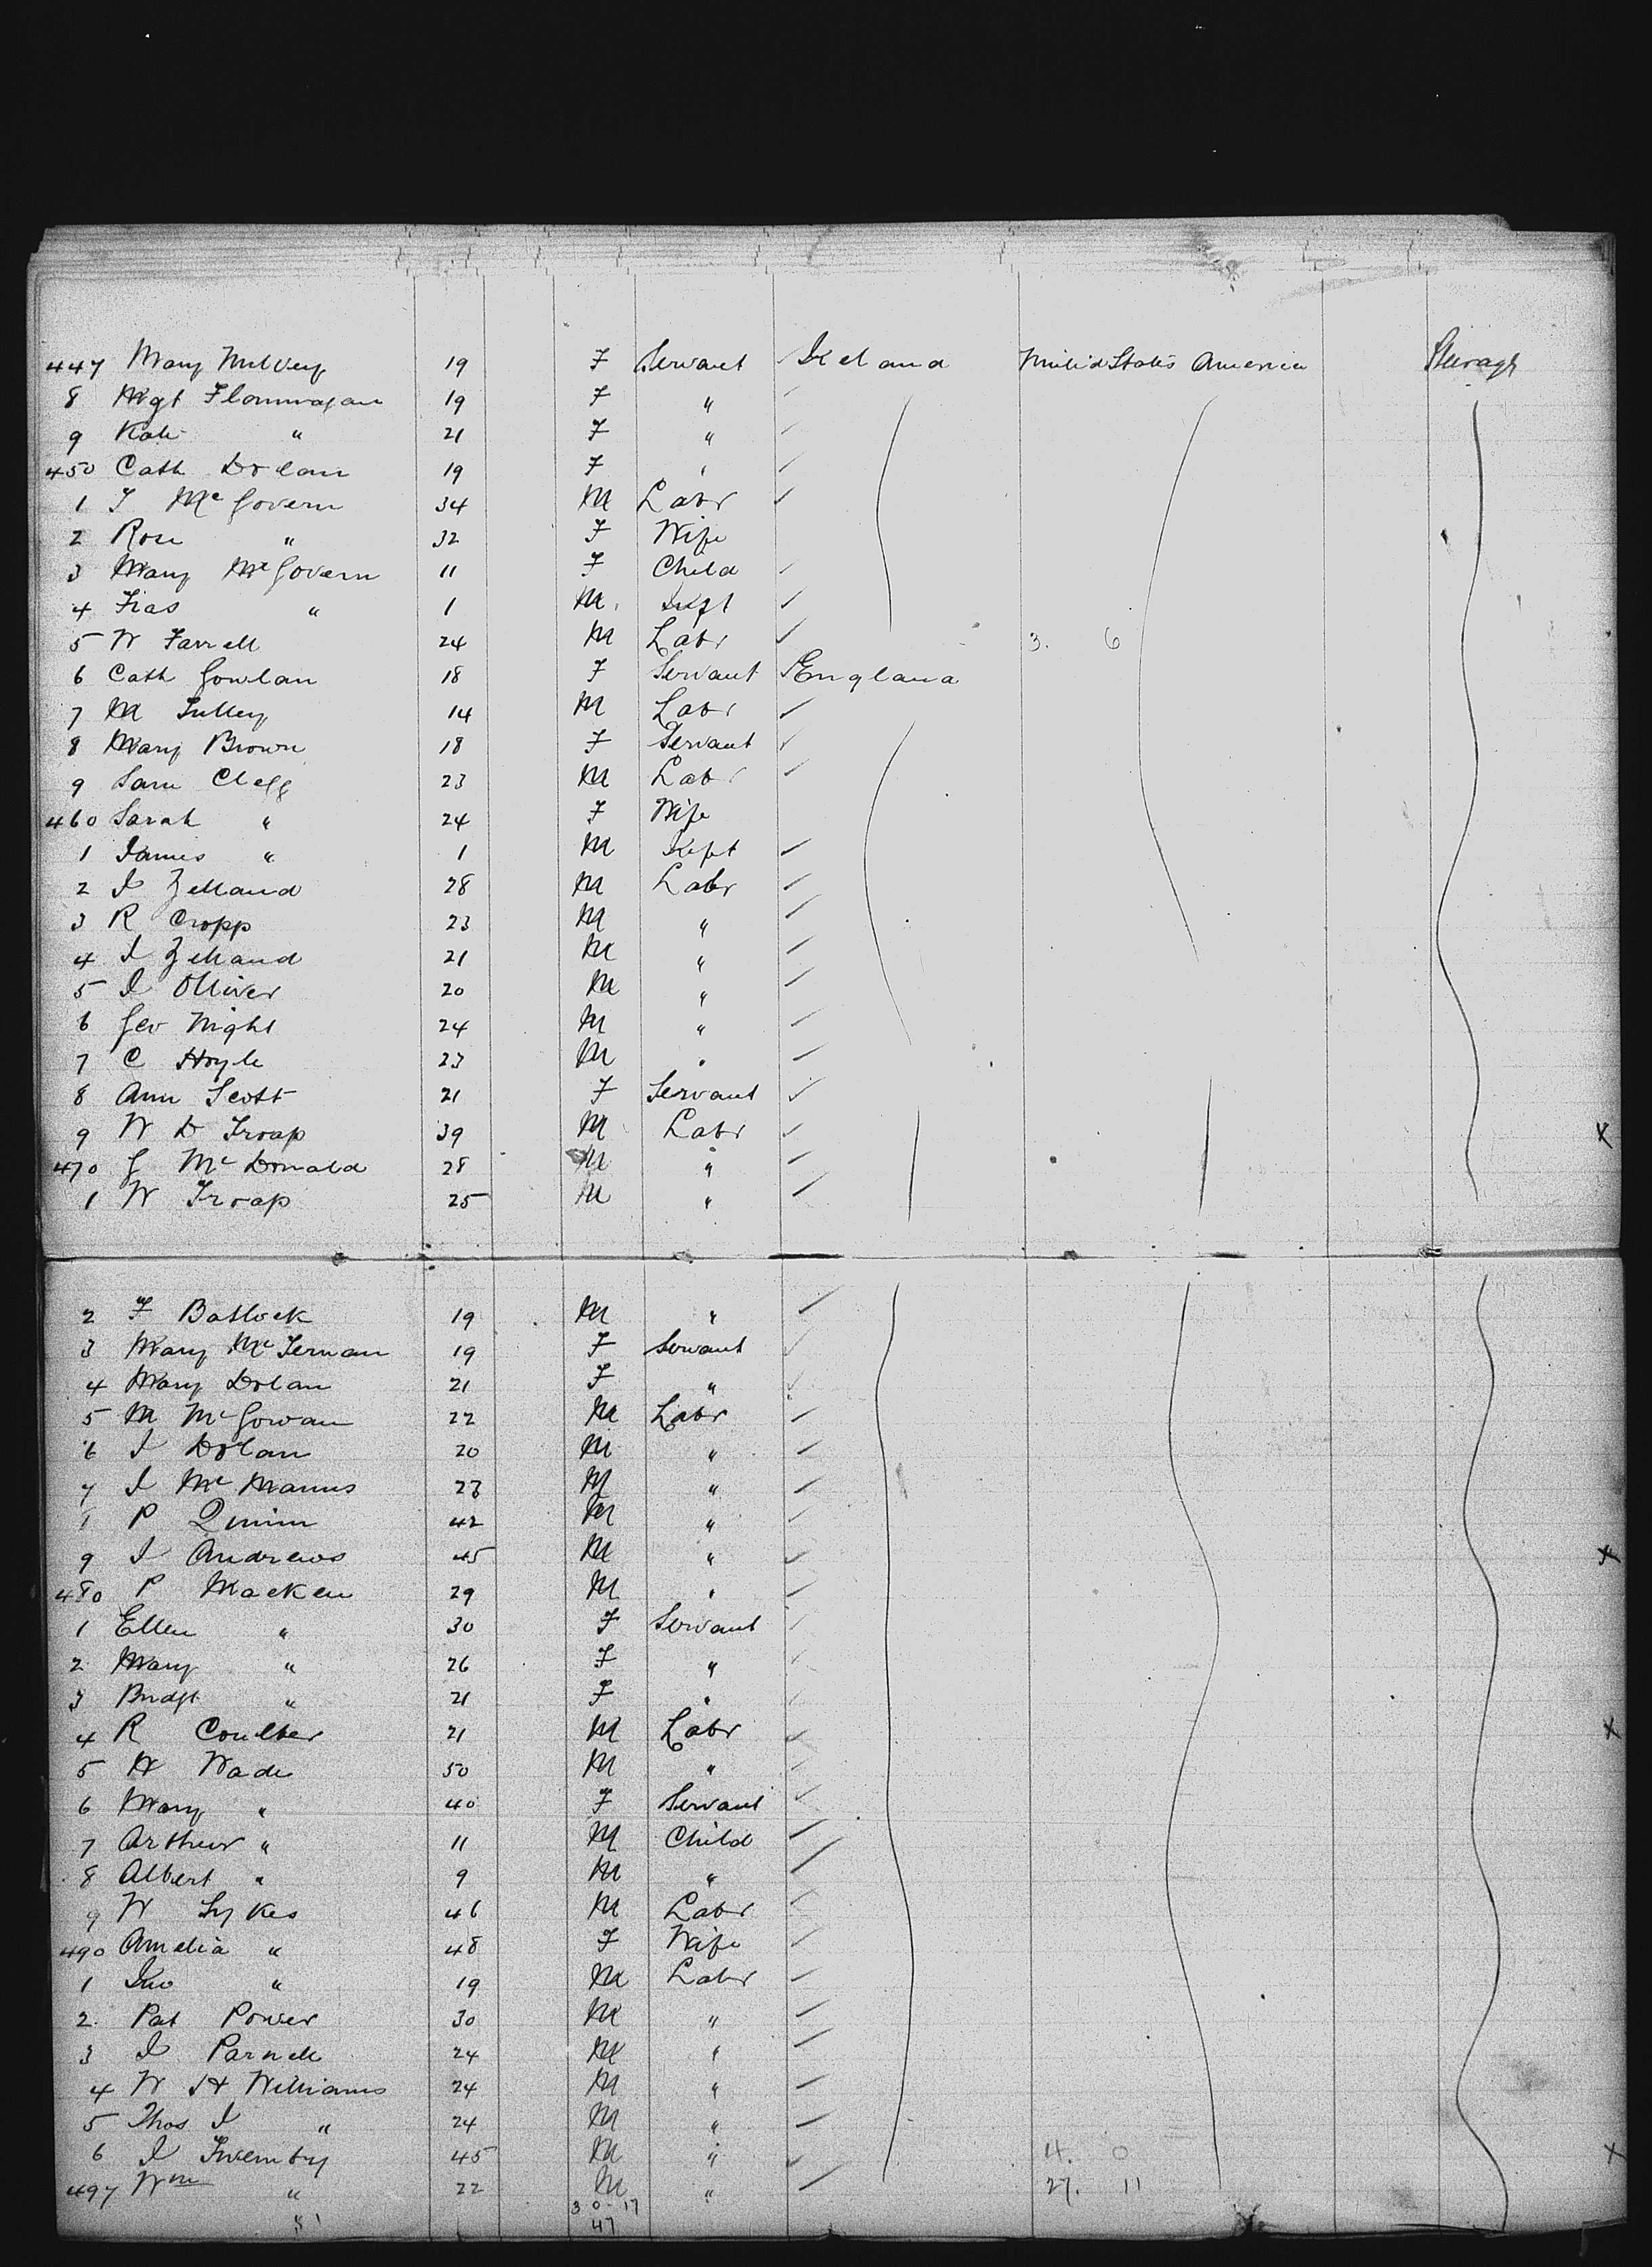 447 Mary McIvery 19 F Servant Ireland United States America Steerage
8 Mgt Flannnagan 19 F "
9 Kate " 21 F "
450 Cath Dolan 19 F "
1 T McGovern 34 M Labr
2 Rose " 32 F Wife
3 Mary McGovern 11 F Child
4 Fras " 1 M Inft
5 W Farrell 24 M Labr 3. 6
6 Cath Gowlan 18 F Servant England
7 M Tulley 14 M Labr
8 Mary Brown 18 F Servant
9 Sam Clegg 23 M Labr
460 Sarah " 24 F Wife
1 James " 1 M Inft
2 J Zelland 28 M Labr
3 R Cropp 23 M "
4 J Zelland 21 M "
5 J Olliver 20 M "
6 Geo Night 24 M "
7 C Hoyle 23 M "
8 Ann Scott 21 F Servant
9 W D Troap 39 M Labr X
470 G McDonald 28 M "
1 W Troap 25 M "
2 F Batlock 19 M "
3 Mary McTernan 19 F Servant
4 Mary Dolan 21 F "
5 M McGowan 22 M Labr
6 J Dolan 20 M "
7 J McManus 23 M "
P Quinn 42 M "
9 J Andrews 45 M " X
480 P Macken 29 M "
1 Ellen " 30 F Servant
2 Mary " 26 F "
3 Bridgt " 21 F "
4 R Coulter 21 M Labr X
5 H Wade 50 M "
6 Mary " 40 F Servant
7 Arthur " 11 M Child
8 Albert " 9 M "
9 W Sykes 46 M Labr
490 Amelia " 48 F Wife
1 Jno " 19 M Labr
2 Pat Power 30 M "
3 J Parnell 24 M "
4 W H Williams 24 M "
5 Thos J " 24 M "
6 J Twemby 45 M " 4. 0 X
497 Wm " 22 M " 27. 11
30-17
47